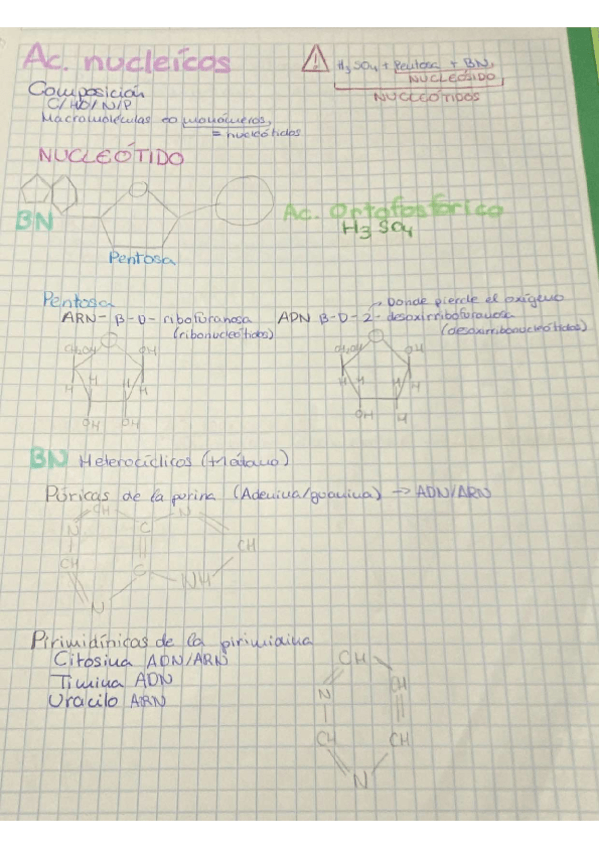 Ac. nucleícos
⚠ H₃SO₄ + Pentosa + BN
NUCLEÓSIDO
NUCLEÓTIDOS
Composición
C/H/O/N/P
Macromoléculas monómeros,
= nucleótidos
NUCLEÓTIDO
BN
Pentosa
Ac. Ortofosfórico
H₃ SO₄
Pentosa
ARN- B-D- ribofuranosa
(ribonucleótidos)
→ Donde pierde el oxígeno
ADN B-D-2-desoxirribofuranosa
(desoxirribonucleótidos)
CH₂OH OH
H H H H
OH OH
CH₂OH OH
H H H H
OH H
BN Heterocíclicos
Púricas de la purina (Adenina/guanina) → ADN/ARN
CH N
N C
CH
CH C
NH
N
Pirimidínicas de la pirimidina
Citosina ADN/ARN
Timina ADN
Uracilo ARN
CH
CH
N
CH CH
N